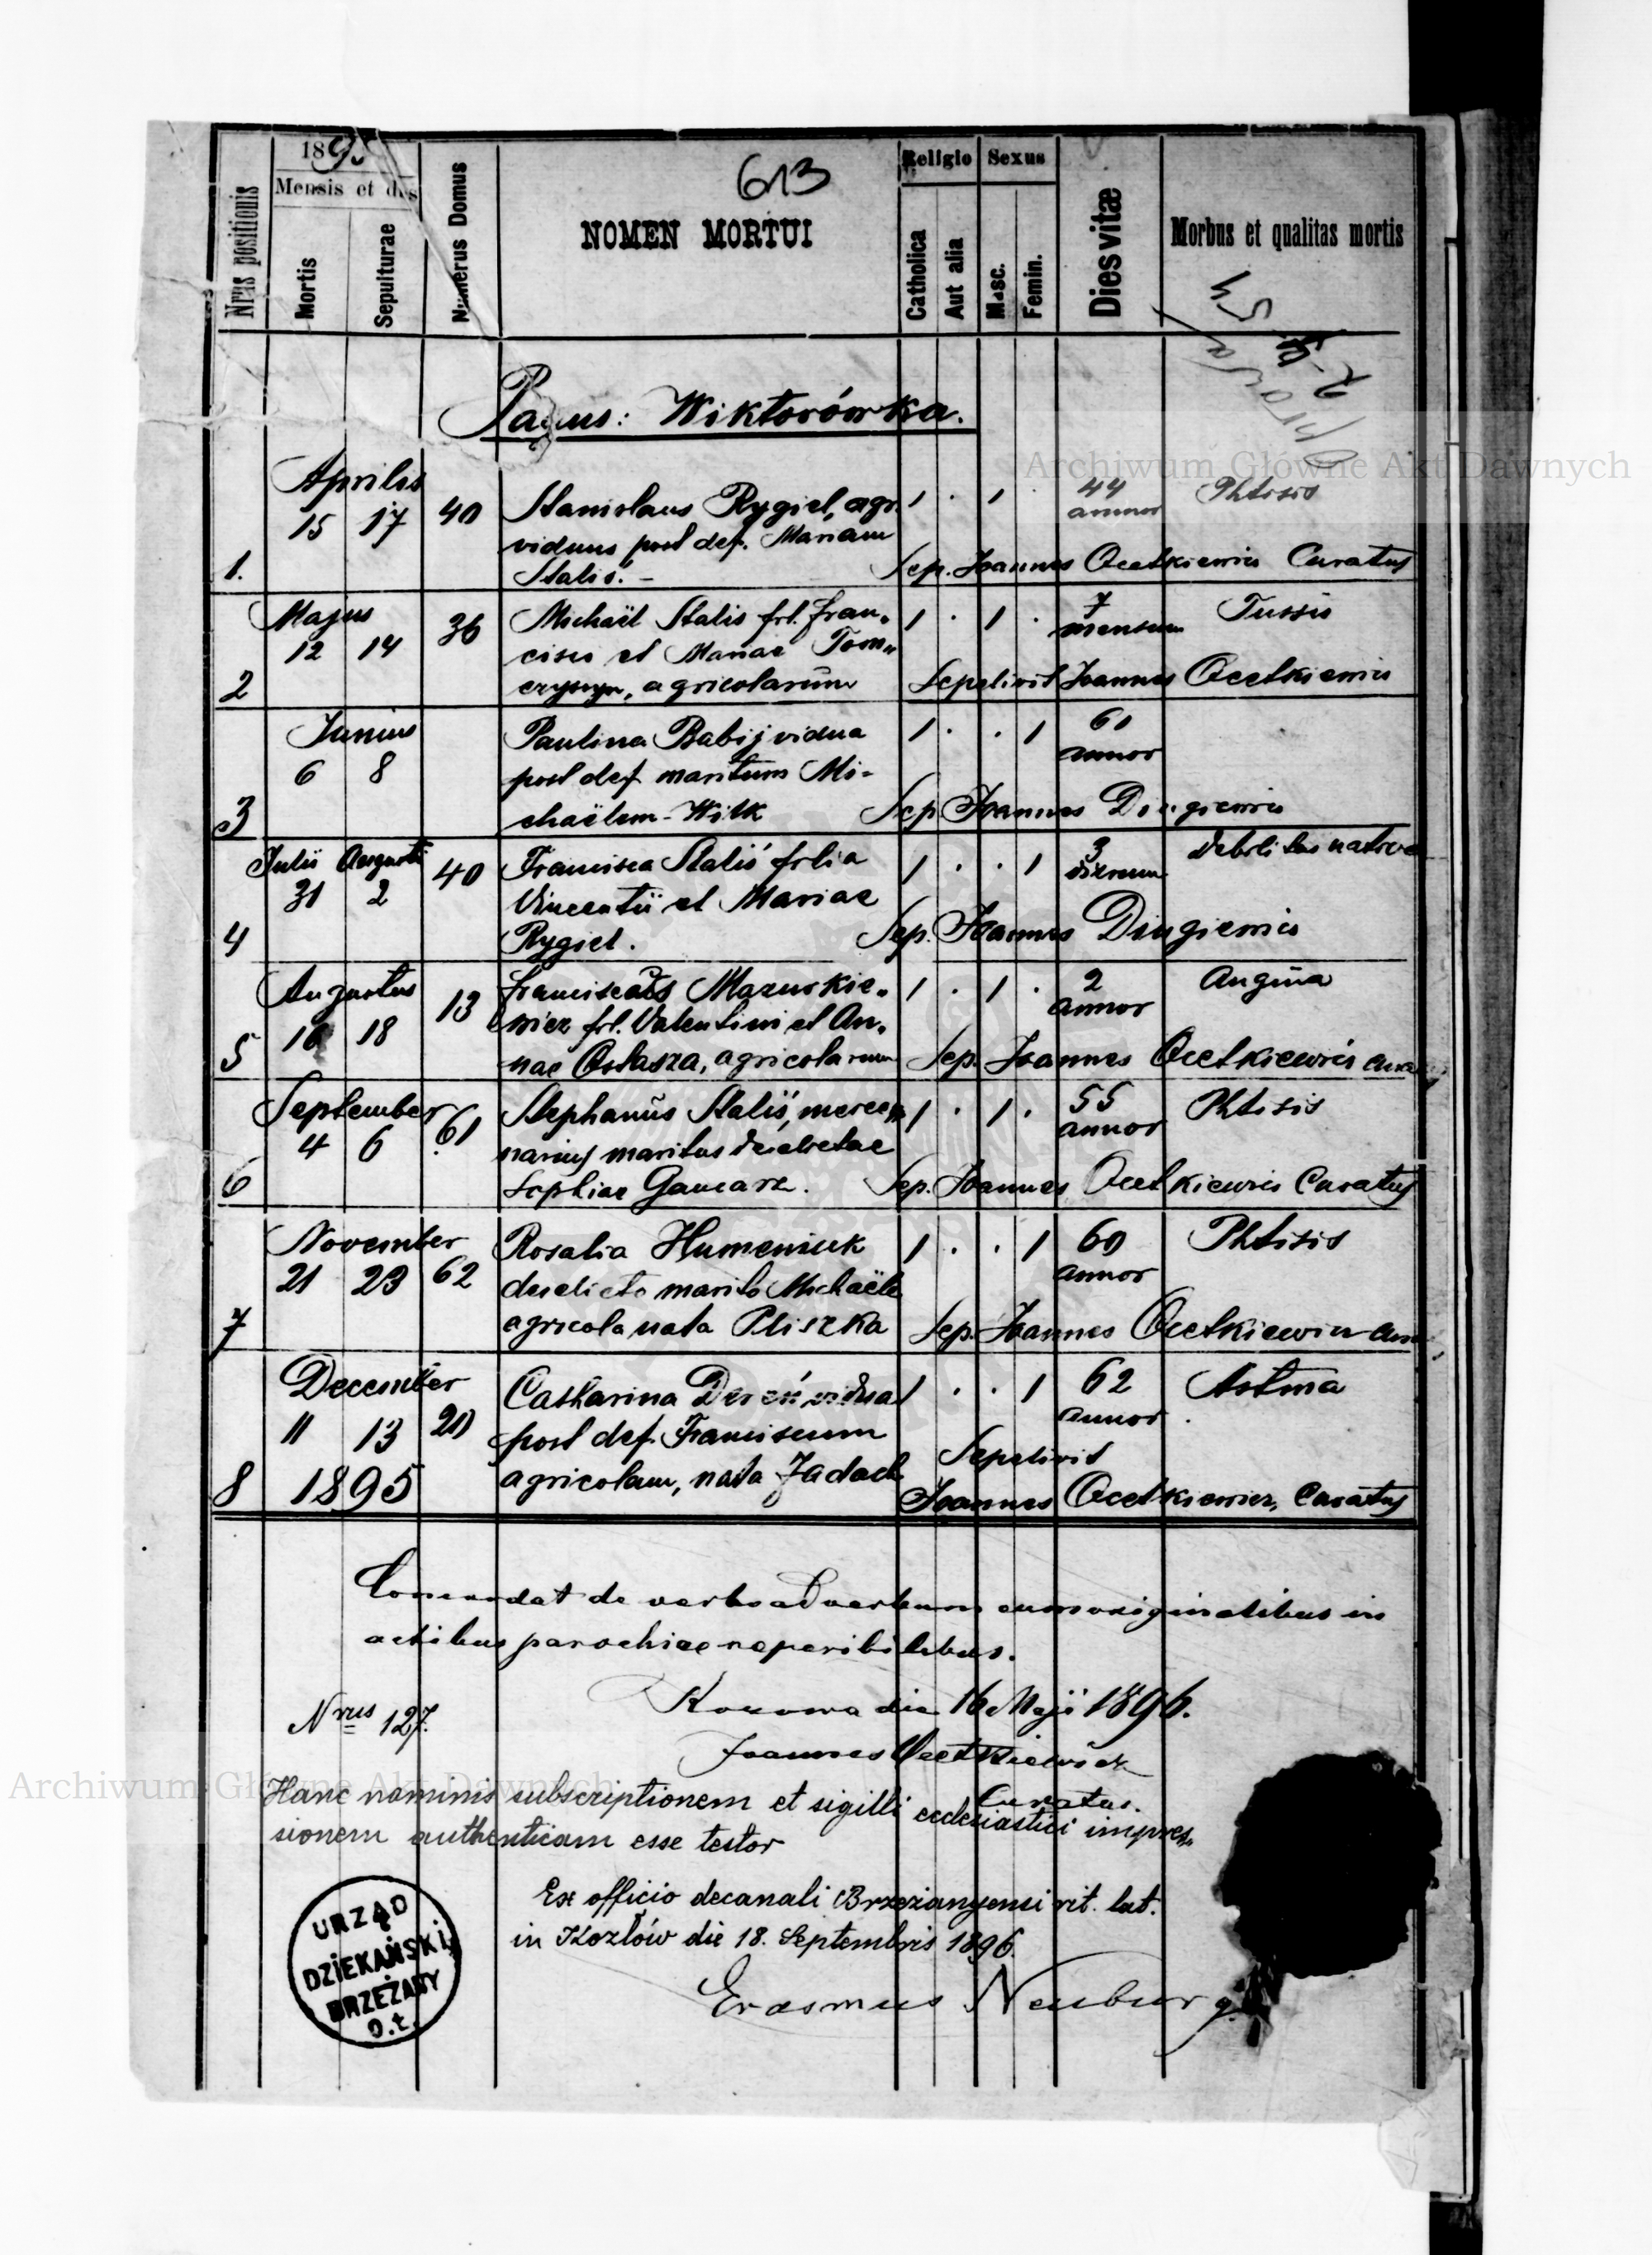 1895
613
Nrus positionis
Mensis et dies
Mortis
Sepulturae
Numerus Domus
NOMEN MORTUI
Religio
Catholica
Aut alia
Sexus
Masc.
Femin.
Dies vitæ
Morbus et qualitas mortis
Pagus: Wiktorówka.
Archiwum Główne Akt Dawnych
Aprilis
15 17 40 Stanislaus Rygiel, agr. 1 . 1 . 44 Phtisis
viduus post def. Mariam annor
1. Stalis. – Sep. Joannes Ocetkiewicz Curatus
Majus
12 14 36 Michaël Stalis fil. Fran- 1 . 1 . 7 Tussis
cisci et Mariae Tom- mensium
2 agricolarum Sepelivit Joannes Ocetkiewicz
Junius
6 8 Paulina Babij vidua 1 . . 1 60
post def maritum Mi- annor
3 chaëlem Wilk Sep Joannes
Julii Augusti
31 2 40 Francisca Staliś filia 1 . . 1 3 debilitas nativa
Vincentii et Mariae dierum
4 Rygiel. Sep. Joannes
Augustus
16 18 13 Franciscus Mazurkie- 1 . 1 . 2 Angina
wicz fil. Valentini et An- annor
5 nae Ostasza, agricolarum Sep. Joannes Ocetkiewicz
September
4 6 61 Stephanus Staliś, merce- 1 . 1 . 55 Phtisis
narius maritus derelictae annor
6 Sophiae Gancarz. Sep. Joannes Ocetkiewicz Curatus
November
21 23 62 Rosalia Humeniuk 1 . . 1 60 Phtisis
derelicto marito Michaële annor
7 agricola nata Pliszka Sep. Joannes Ocetkiewicz
December
11 13 20 Catharina Dereń vidua 1 . . 1 62 Astma
post def. Franciscum annor.
agricolam, nata Jadach Sepelivit
8 1895 Joannes Ocetkiewicz, Curatus
Concordat de verbo ad verbum cum originalibus in
actibus parochiae reperibilibus.
Kozowa die 16 Maji 1896.
Nrus 127.
Joannes Ocetkiewicz
Curatus.
Archiwum Główne Akt Dawnych
Hanc nominis subscriptionem et sigilli ecclesiastici impres-
sionem authenticam esse testor
Ex officio decanali Brzezanyensi rit. lat.
in Kozłów die 18. Septembris 1896.
Erasmus Neuburg
URZĄD
DZIEKAŃSKI
BRZEŻANY
O.ł.